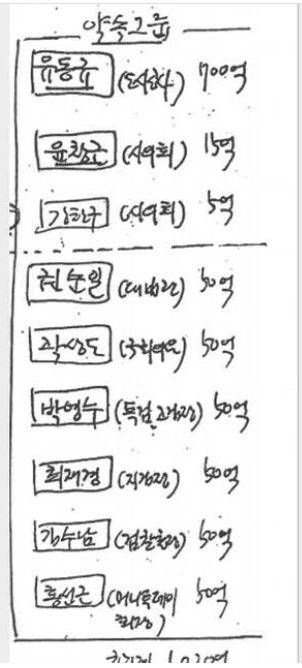 약속그룹
유동규 (도시공사) 700억
윤창근 (시의회) 15억
강한구 (시의회) 5억
권순일 (대법관) 50억
곽상도 (국회의원) 50억
박영수 (특검, 고검장) 50억
최재경 (지검장) 50억
김수남 (검찰총장) 50억
홍선근 (머니투데이 50억
회장)